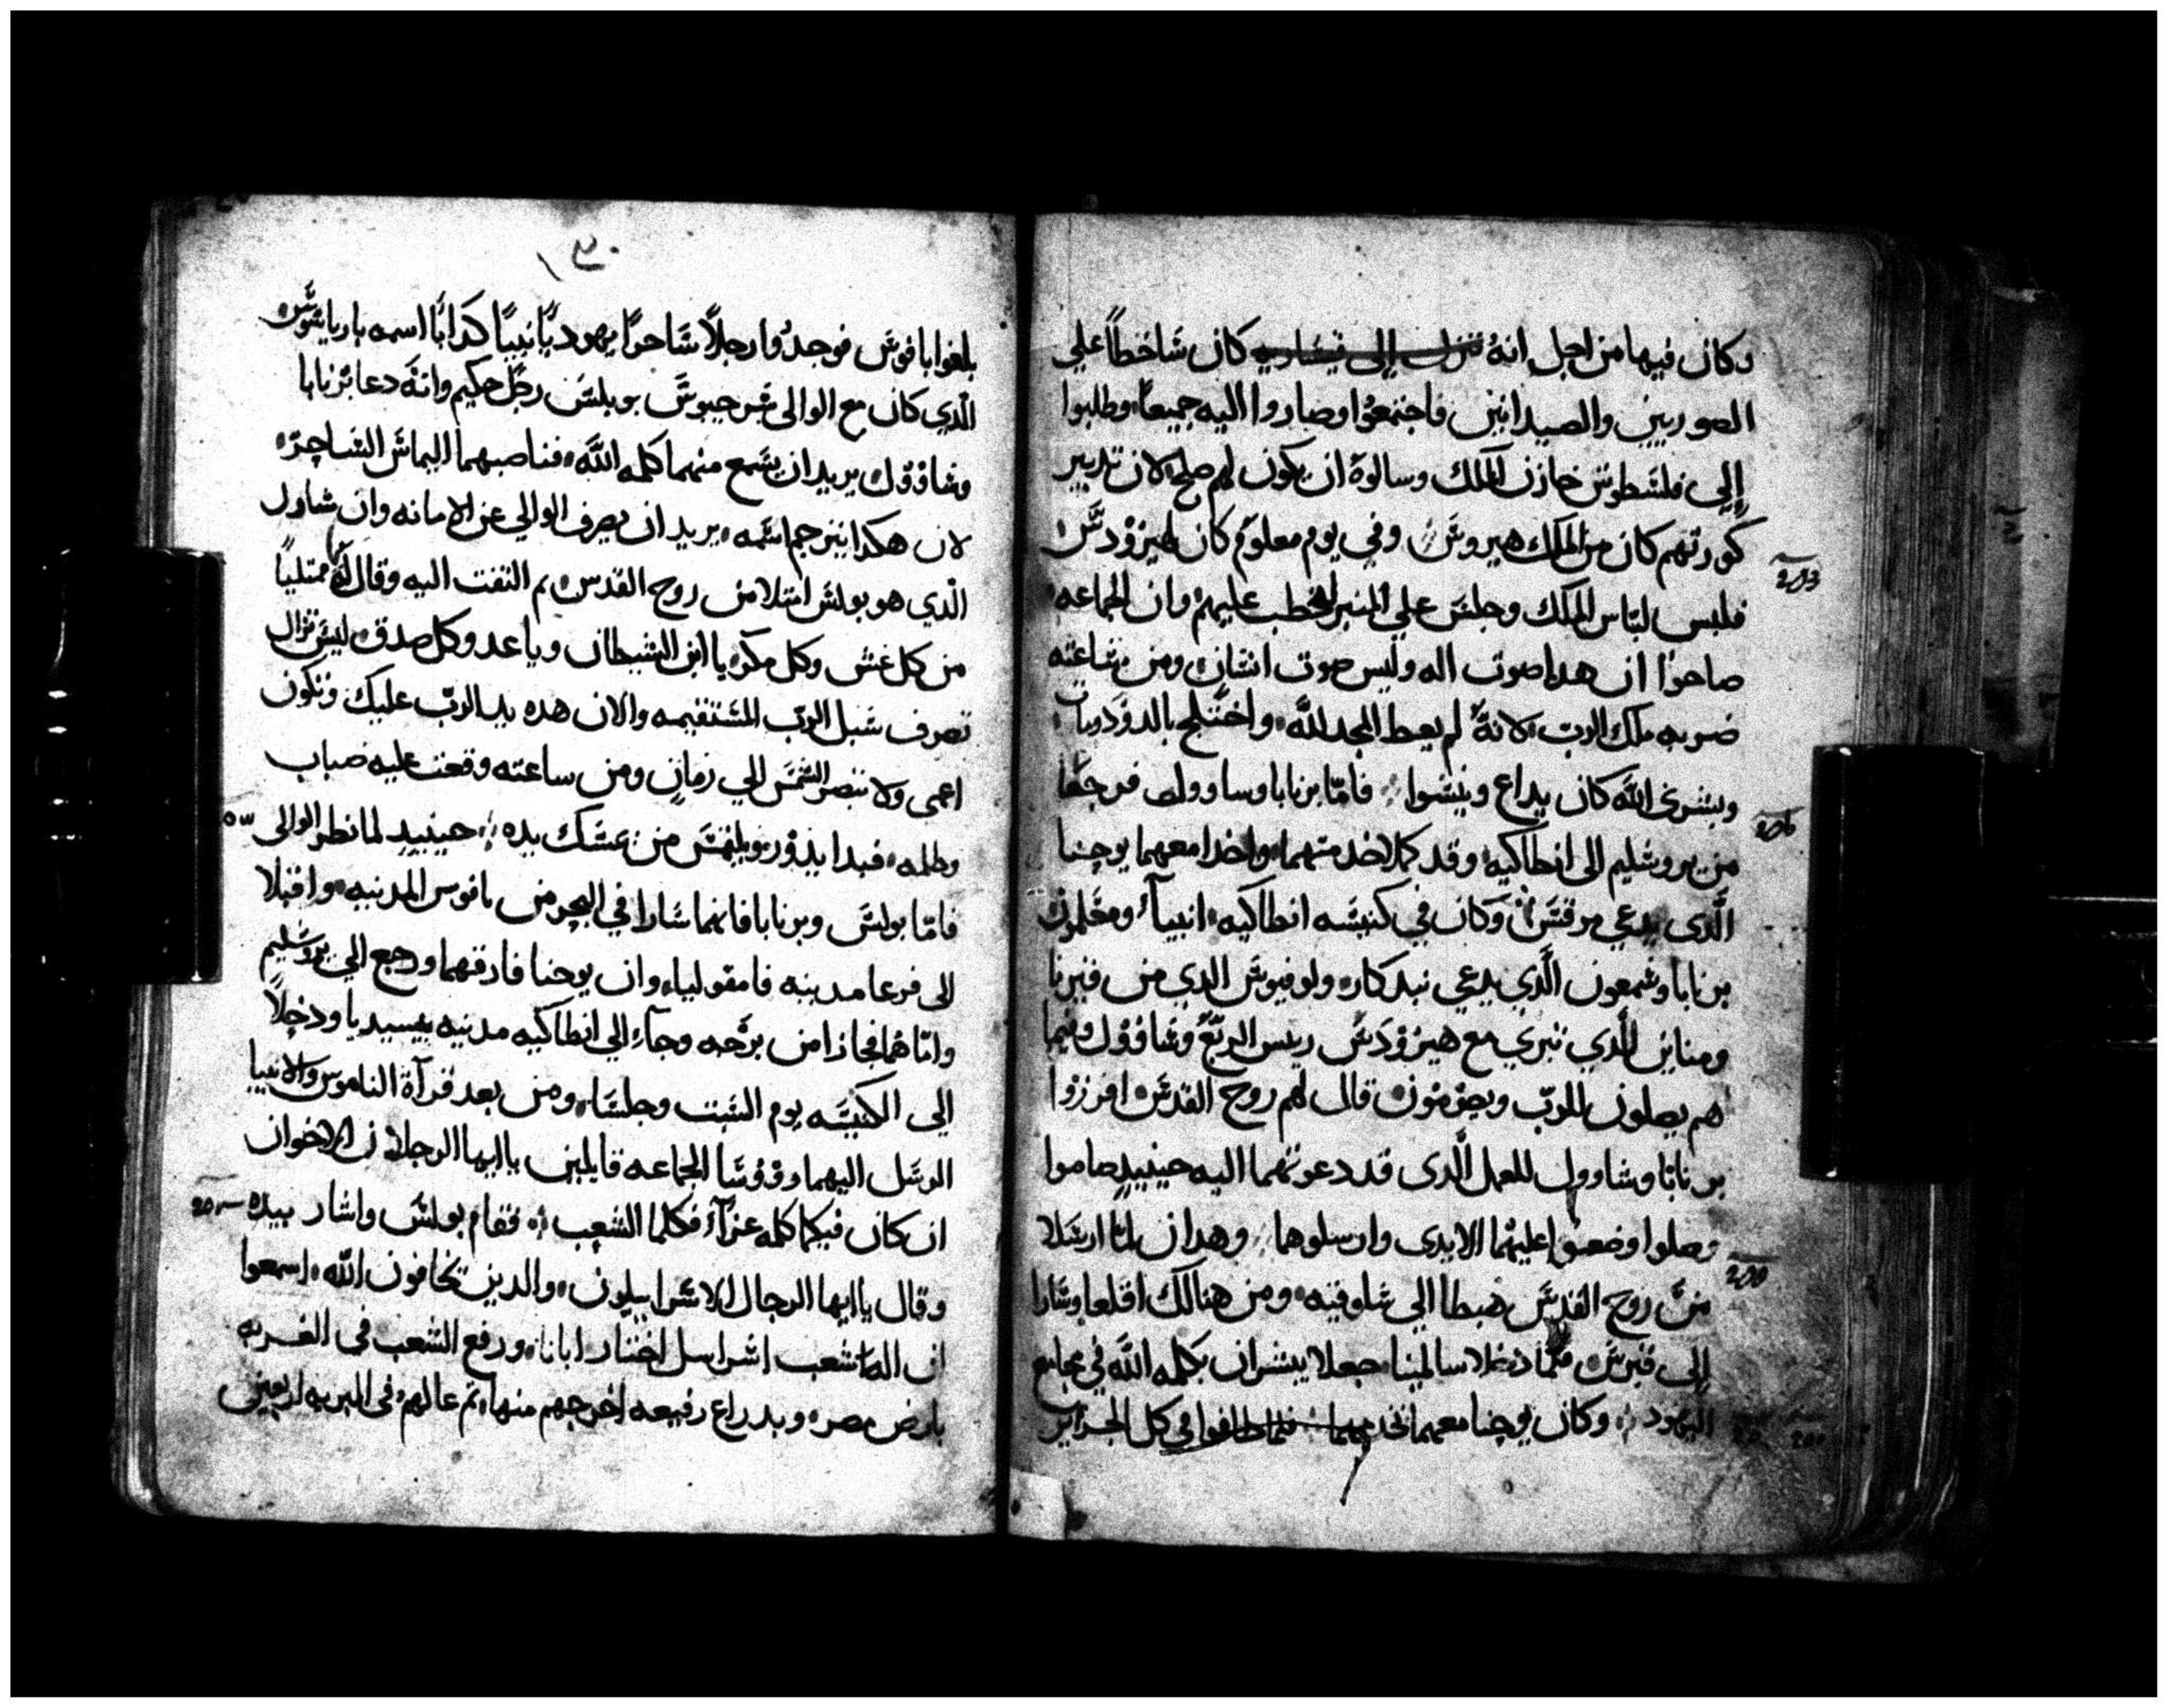 وكان فيها من اجل انهُ نزل إلى قيساريه كان شاخطاً علي
الصوريين والصيدانين فاجتمعُوا وصاروا اليه جميعاً وطلبوا
إلى فلسَطوس خازن الملك وسالوهُ ان يكون لهم صلح لان تدبير
كُورتهم كان من الملك هيروسَ وفي يوم معلوم كان لهيرُوْدسَ
فلبس لبَاس الملك وجلسَ علي المنبر ليخطب عليهم وان الجماعه
صاحوُا ان هدا صوت اله وليس صوت انسَان ومن سَاعته
ضربه ملك الربّ لانهُ لم يعط المجد لله واختلج بالدوْد ومات
وبشرى اللّه كان يداع وينشوا فامّا برنابا وساوول فرجعَا
من يروشليم الى انطاكيه وقد كملا خدمتهما واخدا معهما يوحنا
الَّدى يدعي مرقسَ وَكان في كنيسَه انطاكيه انبيآء ومعَلموْن
برنابا وشمعون الَّدي يدعي نيدكاره ولوقيوسَ الدي من قيرنا
ومناين الَّدي تبري مع هيرُوْدَسَ ريس الربّعْ وشاوْوْل وفيما
هم يصلون للربّ ويصُوْمُون قال لهم روح القدسَ افرزوا
برنابَا وشاوول للعمل الَّدى قد دعوتهما اليه حينيدٍ صاموا
وصلوا وضعوا عليهْما الايدى وارسلوهما وهدان لما ارسَلا
منَّ روح القدسَ هبطا الي سَلوقيه ومن هنالك اقلعا وسَارا
إلى قبرسَ فلمّا دخلا سالمينا جعلا يبشران بكلمه اللّه في مجامع
اليهود وكان يوحنا معهما يخدمهما فلما طافوا في كل الجزاير
١٣٠
بلغوا بافوسَ فوجدُوا رجلاً سَاحراً يهوديًا نبيًا كدابًا اسمه باريا شوسَ
الَّدي كان مع الوالى سَرجيوسَ بوبلسَ رجُل حكيم وانهَ دعا برنابا
وشاوْوْل يريد ان يسَمع منهما كلمه اللّه فناصبهما اليماسَ السَاحِرُ
لان هكدا يترجم اسَمه يريد ان يصرف الوالي عن الامانه وان شاول
الَّدي هو بولسَ امتلا من روح القدس ثم التفت اليه وقال لهُ يا ممتلياً
من كل غش وكل مكر يا ابن الشيطان ويا عدو كل صدق ليسَ تزال
تصرف سَبل الربّ المسَتقيمه والان هده يد الربّ عليك وتكون
اعمى ولا تبصر الشمسَ إلي زمانٍ ومن ساعته وقعت عليه ضباب
وظلمه فبدا يدوْر ويلتمسَ من يمسَك بيده حينيدٍ لما نظر الوالى
فامّا بولسَ وبرنابا فانهما سَارا في البحر من بافوس المدينه واقبلا
الى فرعا مدينه فامفوليا وان يوحنا فارقهما ورجع إلي يروشليم
وامّا هُما فجازا من برْجه وجآء إلي انطاكيه مدينه بيسيديا ودخلاً
إلي الكنيسَه يوم السَبت وجلسَا ومن بعد قرآة الناموس والانبيا
ارسَل اليهما روْوْسَا الجماعه قايلين يا ايها الرجلان الاخوان
ان كان فيكما كلمه عزآء فكلما الشعب فقام بولسَ واشار بيده
وقال يا ايها الرجال الاسَراييليون والدين تخافون اللّه اسمعوا
ان اله شعب اسَراييل اختار ابانا ورفع الشعب في الغربه
بارض مصر وبدراع رفيعه اخرجهم منها ثم عالهم في البريه اربعين